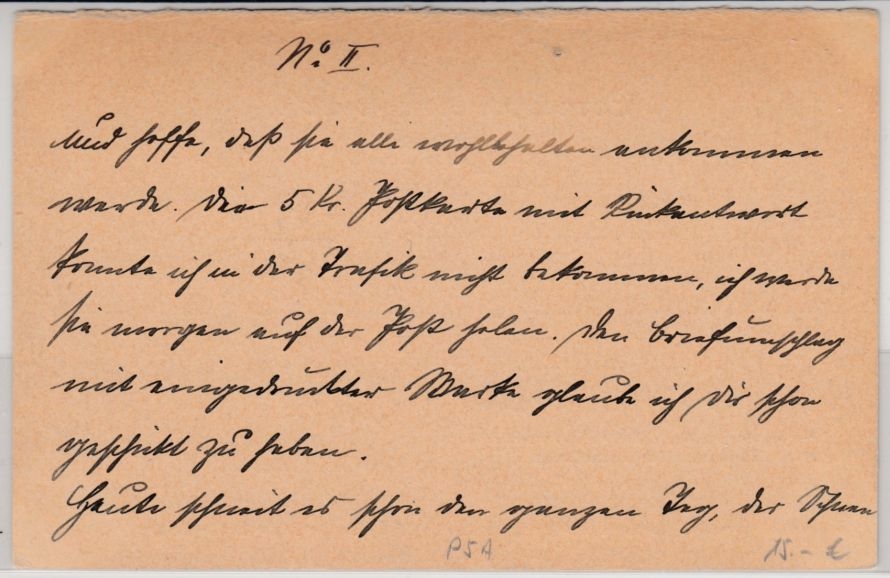 No. II.
und hoffe, daß sie alle wohlbehalten ankommen
werde. Die 5 Kr. Postkarte mit Rückantwort
konnte ich in der Trafik nicht bekommen, ich werde
sie morgen auf der Post holen. Den Briefumschlag
mit eingedruckter Marke glaube ich Dir schon
geschickt zu haben.
Heute schneit es schon den ganzen Tag, der Schnee
P5A 15.-